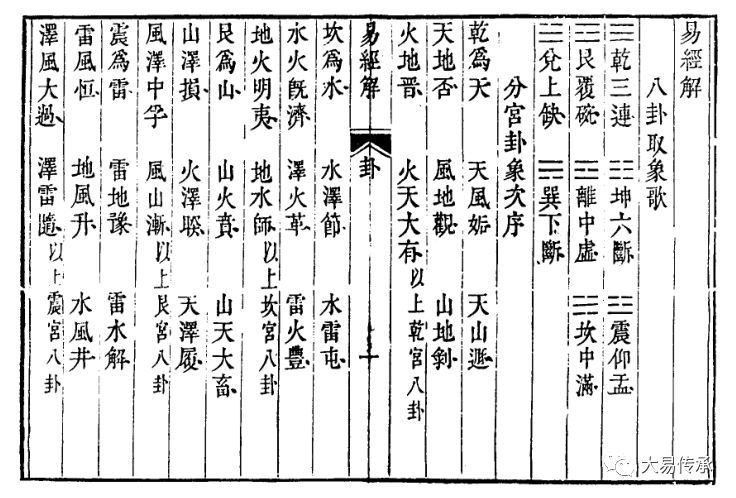 易經解
八卦取象歌
☰乾三連 ☷坤六斷 ☳震仰盂
☶艮覆碗 ☲離中虛 ☵坎中滿
☱兌上缺 ☴巽下斷
分宮卦象次序
乾爲天 天風姤 天山遯
天地否 風地觀 山地剝
火地晉 火天大有以上乾宮八卦
易經解 卦 十
坎爲水 水澤節 水雷屯
水火旣濟 澤火革 雷火豐
地火明夷 地水師以上坎宮八卦
艮爲山 山火賁 山天大畜
山澤損 火澤睽 天澤履
風澤中孚 風山漸以上艮宮八卦
震爲雷 雷地豫 雷水解
雷風恒 地風升 水風井
澤風大過 澤雷隨以上震宮八卦
大易传承